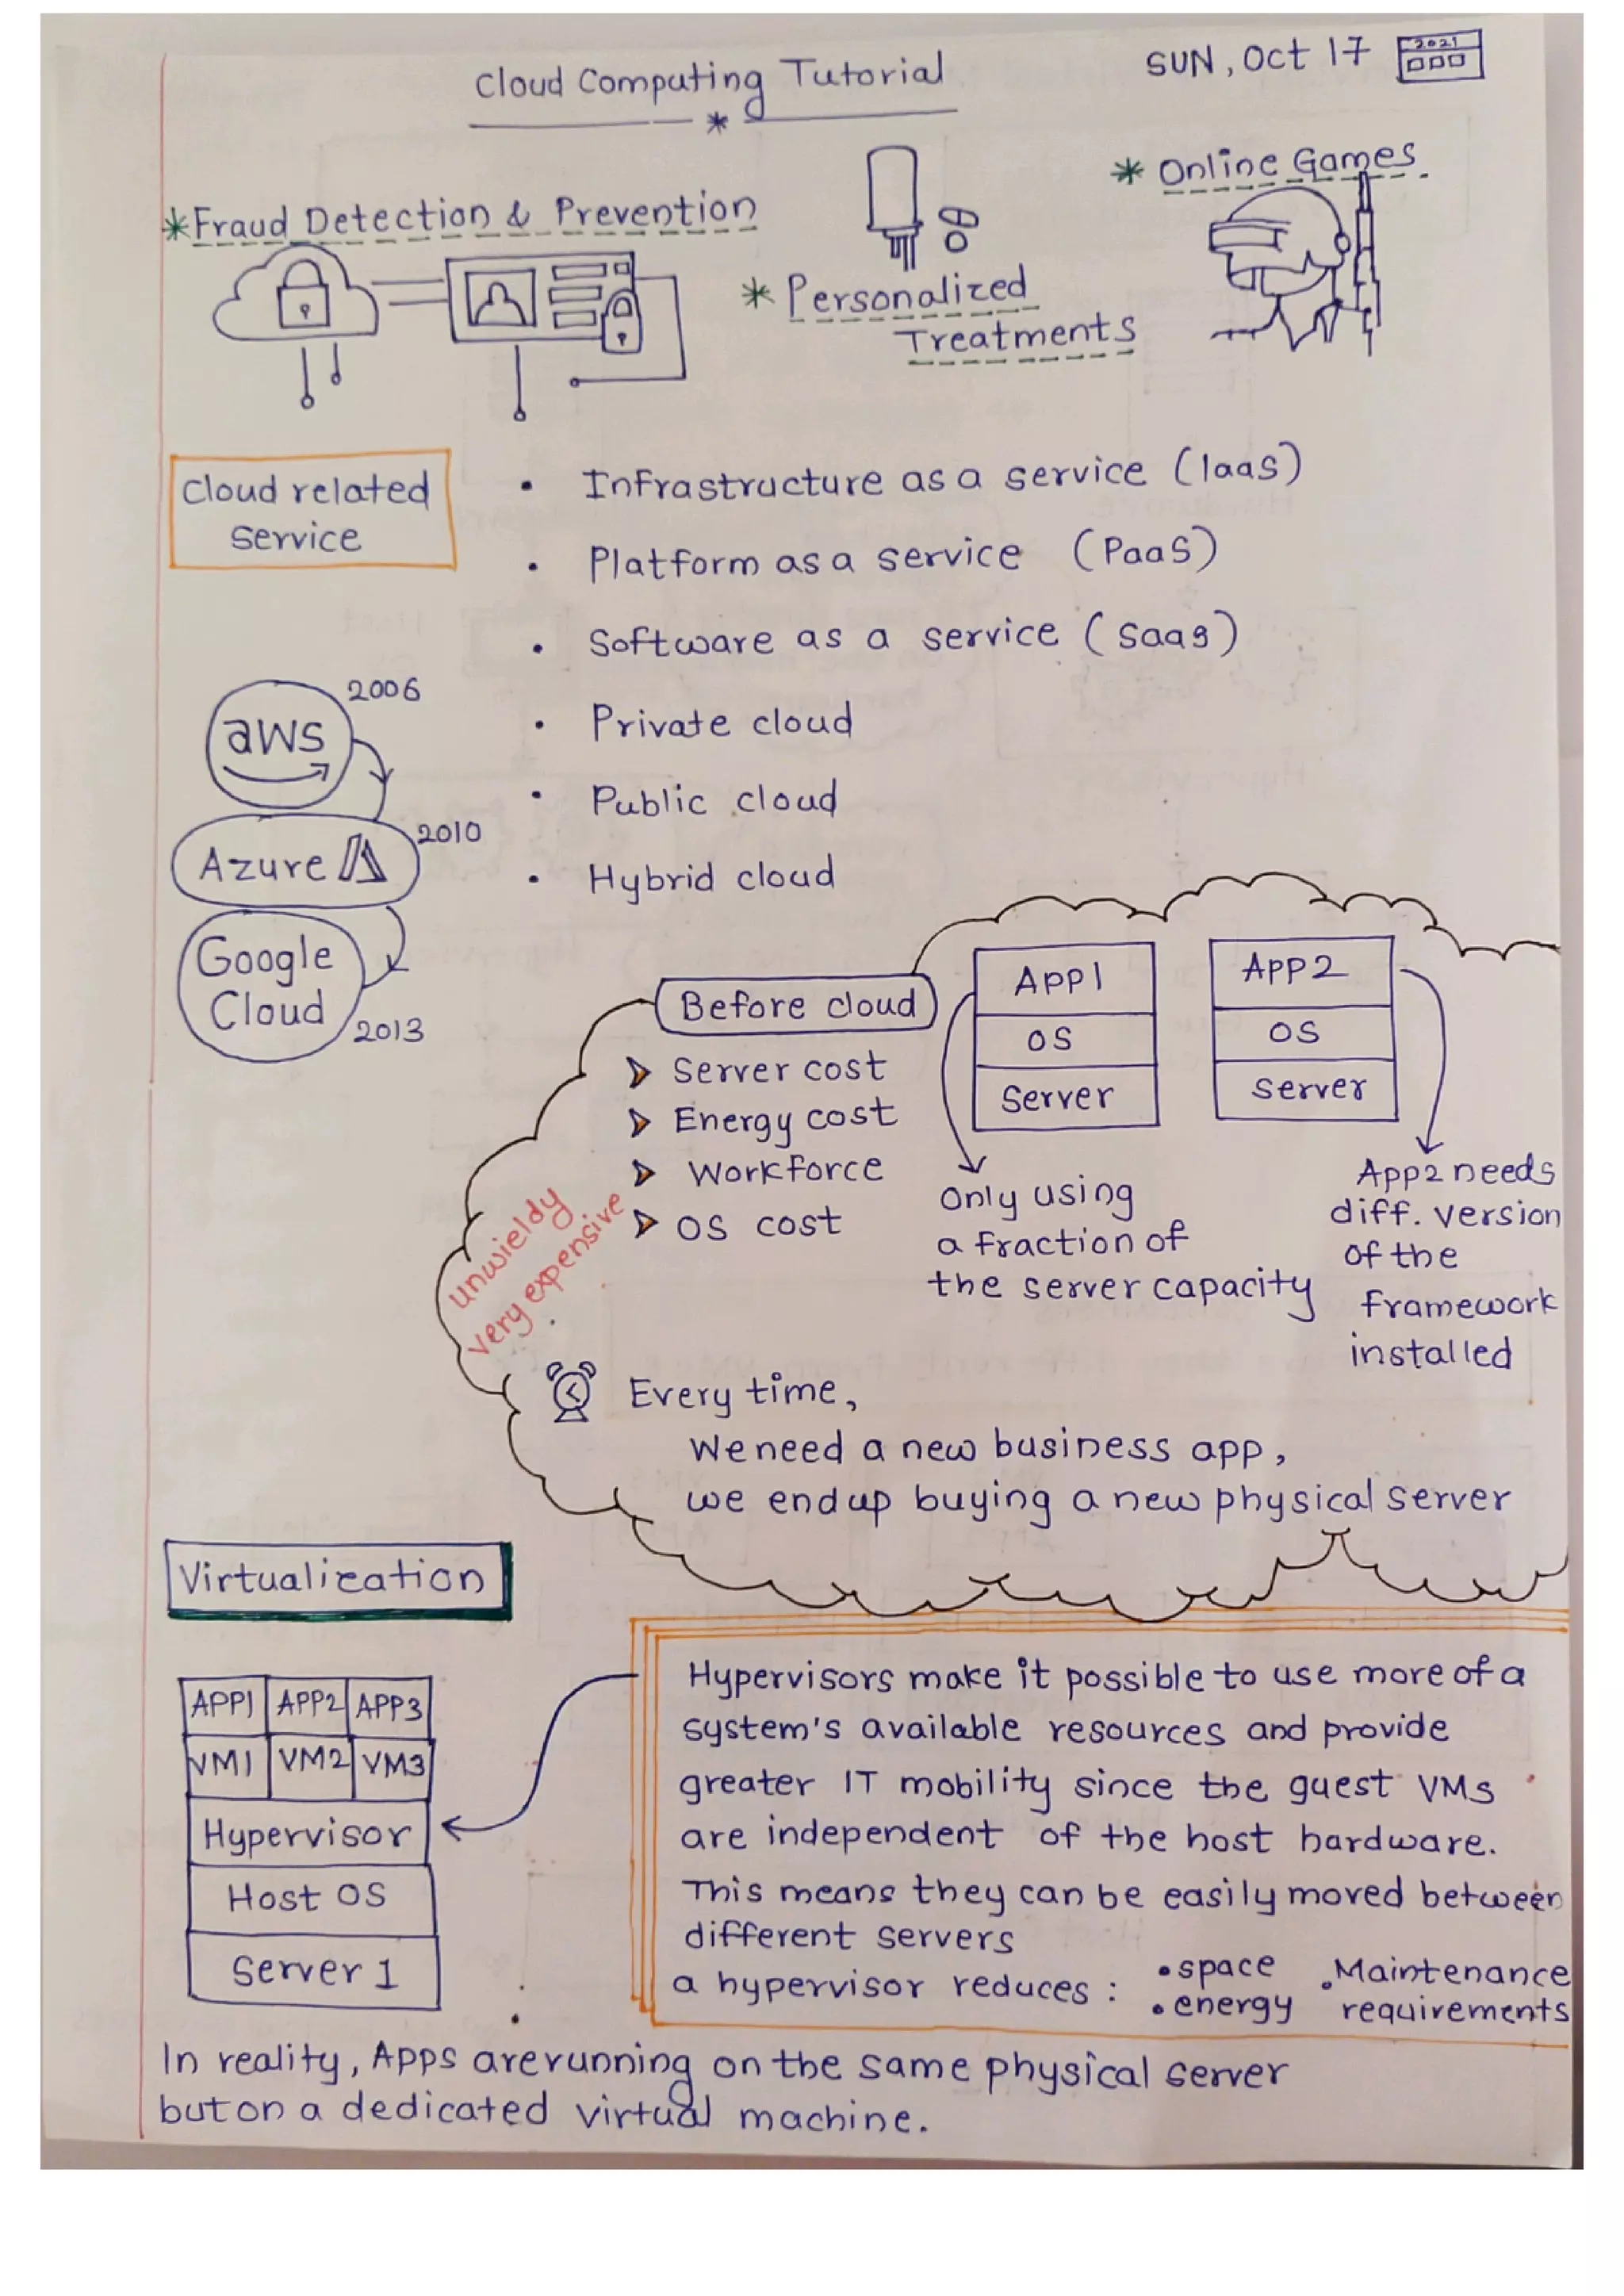 Cloud Computing Tutorial
SUN, Oct 17
2021
* Fraud Detection & Prevention
* Personalized
Treatments
* Online Games
Cloud related
Service
• Infrastructure as a service (IaaS)
• Platform as a service (PaaS)
• Software as a service (SaaS)
• Private cloud
• Public cloud
• Hybrid cloud
aws
2006
Azure
2010
Google
Cloud
2013
Before cloud
Server cost
Energy cost
Workforce
OS cost
unwieldy
very expensive
App1
OS
Server
App2
OS
Server
Only using
a fraction of
the server capacity
App2 needs
diff. version
of the
framework
installed
Every time,
We need a new business app,
we end up buying a new physical server
Virtualization
APP1 APP2 APP3
VM1 VM2 VM3
Hypervisor
Host OS
Server 1
Hypervisors make it possible to use more of a
system's available resources and provide
greater IT mobility since the guest VMs
are independent of the host hardware.
This means they can be easily moved between
different servers
a hypervisor reduces : • space • Maintenance
• energy requirements
In reality, Apps are running on the same physical server
but on a dedicated virtual machine.